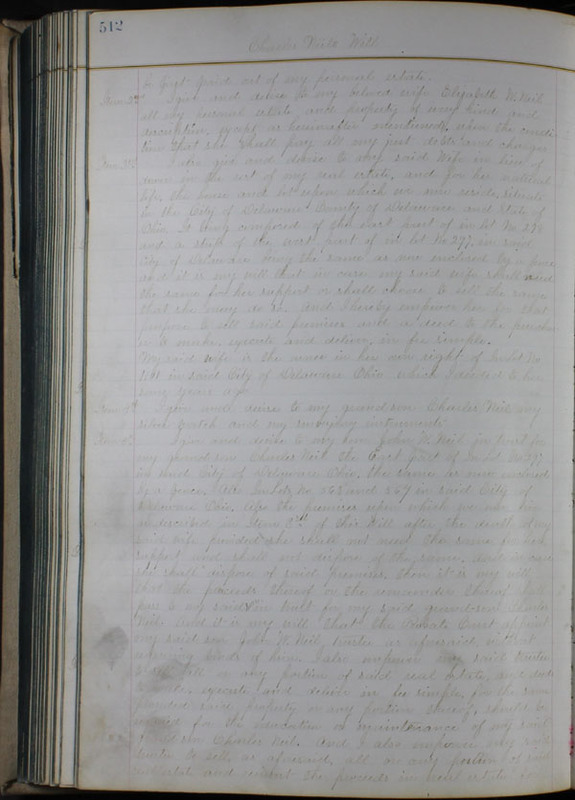 512
Charles Neil's Will
be first paid out of my personal estate.
Item 2nd I give and devise to my beloved wife Elizabeth W. Neil
all my personal estate and property of every kind and
description, except as hereinafter mentioned, upon the condi-
tion that she shall pay all my just debts and charges
Item 3rd I also give and devise to my said wife in lieu of
dower in the rest of my real estate, and for her natural
life, the house and lot upon which we now reside, situate
in the City of Delaware County of Delaware and State of
Ohio. It being composed of the East part of in lot No. 278
and a strip of the west part of in lot No. 277 in said
City of Delaware being the same as now enclosed by a fence
and it is my will that in case my said wife shall need
the same for her support or shall choose to sell the same
that she may do so, and I hereby empower her for that
purpose to sell said premises and a deed to the purchas-
er to make, execute and deliver, in fee simple.
My said wife is the owner in her own right of Inlot No
in said City of Delaware Ohio which I deeded to her
some years ago
Item 4th I give and devise to my grandson Charlie Neil my
silver watch and my surveying instruments
Item 5th I give and devise to my son John W. Neil in trust for
my grandson Charles Neil the East part of Inlot No. 277
in said City of Delaware Ohio, the same as now enclosed
by a fence. Also Inlots No 568 and 567 in said City of
Delaware Ohio. Also the premises upon which we now live
as described in Item 3rd of this Will after the death of my
said wife provided she shall not need the same for her
support and shall not dispose of the same, and in case
she shall dispose of said premises, then it is my will
that the proceeds thereof or the remainder thereof shall
pass to my said son in trust for my said grandson Charles
Neil. And it is my will that the Probate Court appoint
my said son John W. Neil, trustee as aforesaid, without
requiring bonds of him. I also empower my said trustee
to sell all or any portion of said real estate, and deeds
to make, execute and deliver in fee simple, for the same
provided said property or any portion thereof, should be
needed for the education or maintenance of my said
grandson Charles Neil. And I also empower my said
trustee to sell, as aforesaid, all or any portion of said
real estate and reinvest the proceeds in real estate